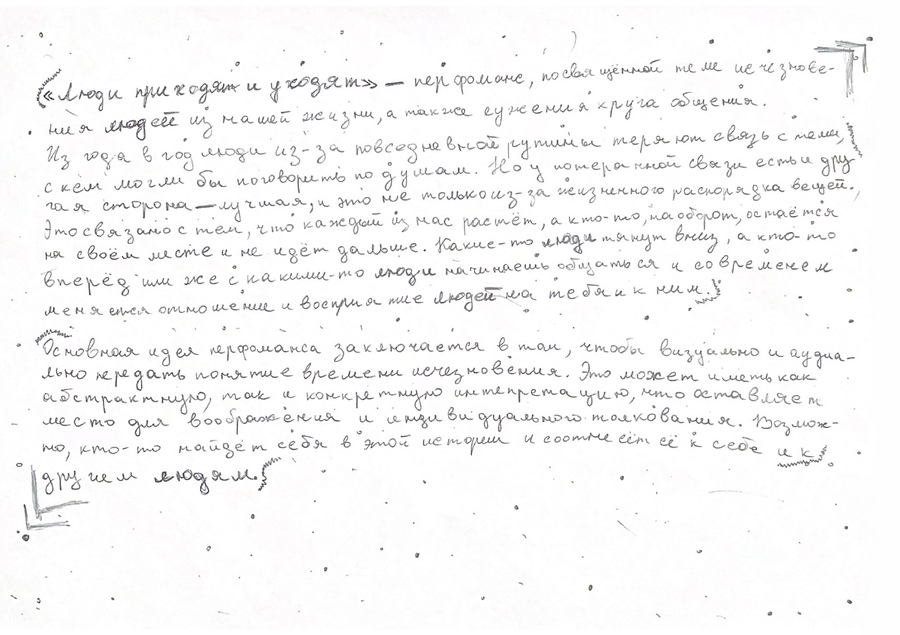 «Люди приходят и уходят» — перфоманс, посвящённой теме исчезнове-
ния людей из нашей жизни, а также сужения круга общения.
Из года в год люди из-за повседневной рутины теряют связь с теми,
с кем могли бы поговорить по душам. Но у потерянной связи есть и дру
гая сторона — лучшая, и это не только из-за жизненного распорядка вещей.
Это связано с тем, что каждый из нас растёт, а кто-то, наоборот, остаётся
на своём месте и не идёт дальше. Какие-то люди тянут вниз, а кто-то
вперёд или же с какими-то люди начинаешь общаться и со временем
меняется отношение и восприятие людей на тебя и к ним.
Основная идея перфоманса заключается в том, чтобы визуально и аудиа-
льно передать понятие времени исчезновения. Это может иметь как
абстрактную, так и конкретную интепретацию, что оставляет
место для воображения и индивидуального толкования. Возмож-
но, кто-то найдёт себя в этой истории и соотнесёт её к себе и к
другим людям.